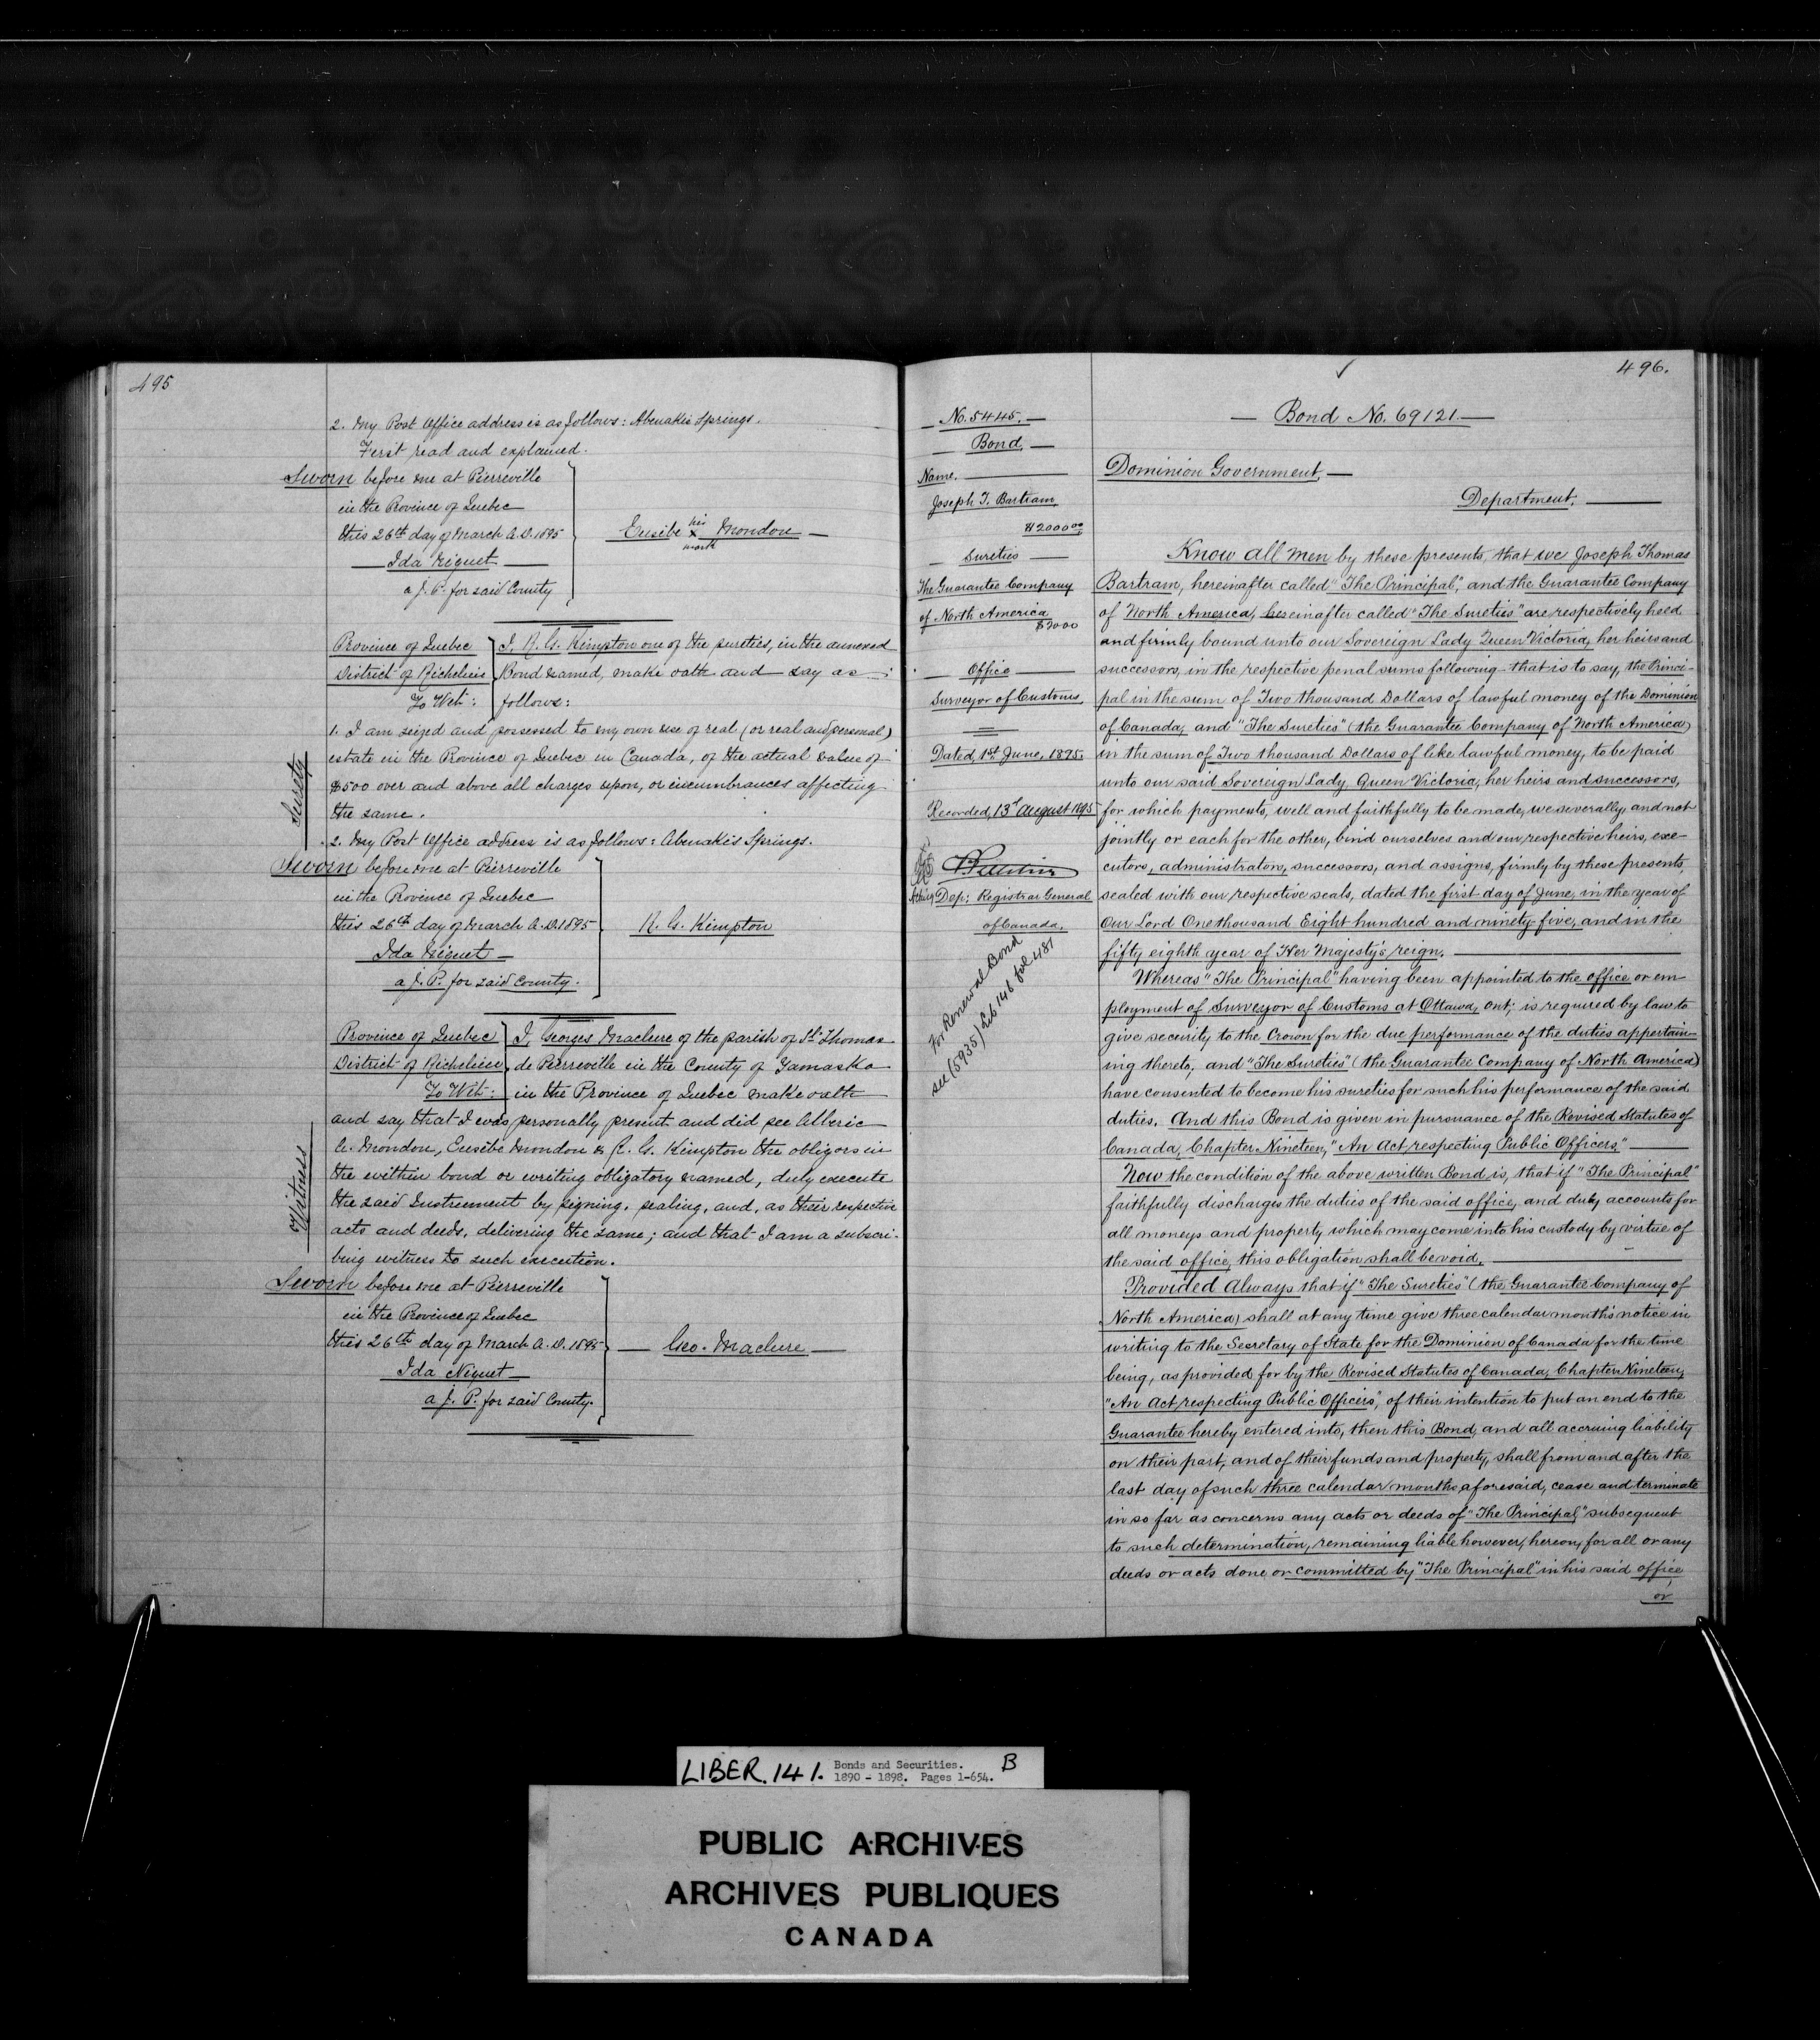 495
2. My Post Office address is as follows: Abenakis Springs.
First read and explained.
Sworn before me at Pierreville
in the Province of Quebec
this 26th day of March A.D. 1895
Ida Niquet
a J. P. for said County
his
Eusibe x Mondou
mark
Province of Quebec
District of Richelieu
To Wit:
I, R. G. Kimpton one of the sureties, in the annexed
Bond named, make oath and say as
follows:
Surety
1. I am seized and possessed to my own use of real (or real and personal)
estate in the Province of Quebec in Canada, of the actual value of
$500 over and above all charges upon, or incumbrances affecting
the same.
2. My Post Office address is as follows: Abenakis Springs.
Sworn before me at Pierreville
in the Province of Quebec
this 26th day of March A.D. 1895
Ida Niquet
a J. P. for said County.
R. G. Kimpton
Province of Quebec
District of Richelieu
To Wit:
I, Georges Maclure of the parish of St. Thomas
de Pierreville in the County of Yamaska
in the Province of Quebec make oath
Witness
and say that I was personally present and did see Alberic
A. Mondou, Eusibe Mondou & R. G. Kimpton the obligors in
the within bond or writing obligatory named, duly execute
the said Instrument by signing, sealing, and, as their respective
acts and deeds, delivering the same; and that I am a subscri-
bing witness to such execution.
Sworn before me at Pierreville
in the Province of Quebec
this 26th day of March A.D. 1895
Ida Niquet
a J. P. for said County.
Geo. Maclure
496.
No. 5445.
Bond
Name.
Joseph T. Bartram
$2000.00
Sureties
The Guarantee Company
of North America
$2000
Office
Surveyor of Customs.
Dated, 1st June, 1895.
Recorded, 13th August 1895
Acting Dep: Registrar General
of Canada,
For Renewal Bond
see (5935) Lib 146 fol 481
Bond No. 69121
Dominion Government,
Department.
Know all Men by these presents, that we Joseph Thomas
Bartram, hereinafter called "The Principal", and the Guarantee Company
of North America, hereinafter called "The Sureties" are respectively held
and firmly bound unto our Sovereign Lady Queen Victoria, her heirs and
successors, in the respective penal sums following - that is to say, the Princi-
pal in the sum of Two thousand Dollars of lawful money of the Dominion
of Canada, and "The Sureties" (the Guarantee Company of North America)
in the sum of Two thousand Dollars of like lawful money, to be paid
unto our said Sovereign Lady, Queen Victoria, her heirs and successors,
for which payments, well and faithfully to be made, we severally, and not
jointly or each for the other, bind ourselves and our respective heirs, exe-
cutors, administrators, successors, and assigns, firmly by these presents,
sealed with our respective seals, dated the first day of June, in the year of
Our Lord One thousand Eight hundred and ninety five, and in the
fifty eighth year of Her Majesty's reign.
Whereas "The Principal" having been appointed to the office or em-
ployment of Surveyor of Customs at Ottawa, Ont; is required by law to
give security to the Crown for the due performance of the duties appertain-
ing thereto, and "The Sureties" (the Guarantee Company of North America)
have consented to become his sureties for such his performance of the said
duties. And this Bond is given in pursuance of the Revised Statutes of
Canada, Chapter Nineteen, "An Act respecting Public Officers."
Now the condition of the above written Bond is, that if "The Principal"
faithfully discharges the duties of the said office, and duly accounts for
all moneys and property which may come into his custody by virtue of
the said office, this obligation shall be void.
Provided Always that if "The Sureties" (the Guarantee Company of
North America) shall at any time give three calendar month's notice in
writing to the Secretary of State for the Dominion of Canada for the time
being, as provided for by the Revised Statutes of Canada, Chapter Nineteen,
"An Act respecting Public Officers," of their intention to put an end to the
Guarantee hereby entered into, then this Bond, and all accruing liability
on their part, and of their funds and property, shall from and after the
last day of such three calendar months, aforesaid, cease and terminate
in so far as concerns any acts or deeds of "The Principal" subsequent
to such determination, remaining liable however, hereon, for all or any
deeds or acts done or committed by "The Principal" in his said office
or
LIBER. 141. Bonds and Securities. B
1890 - 1898. Pages 1-654.
PUBLIC ARCHIVES
ARCHIVES PUBLIQUES
CANADA